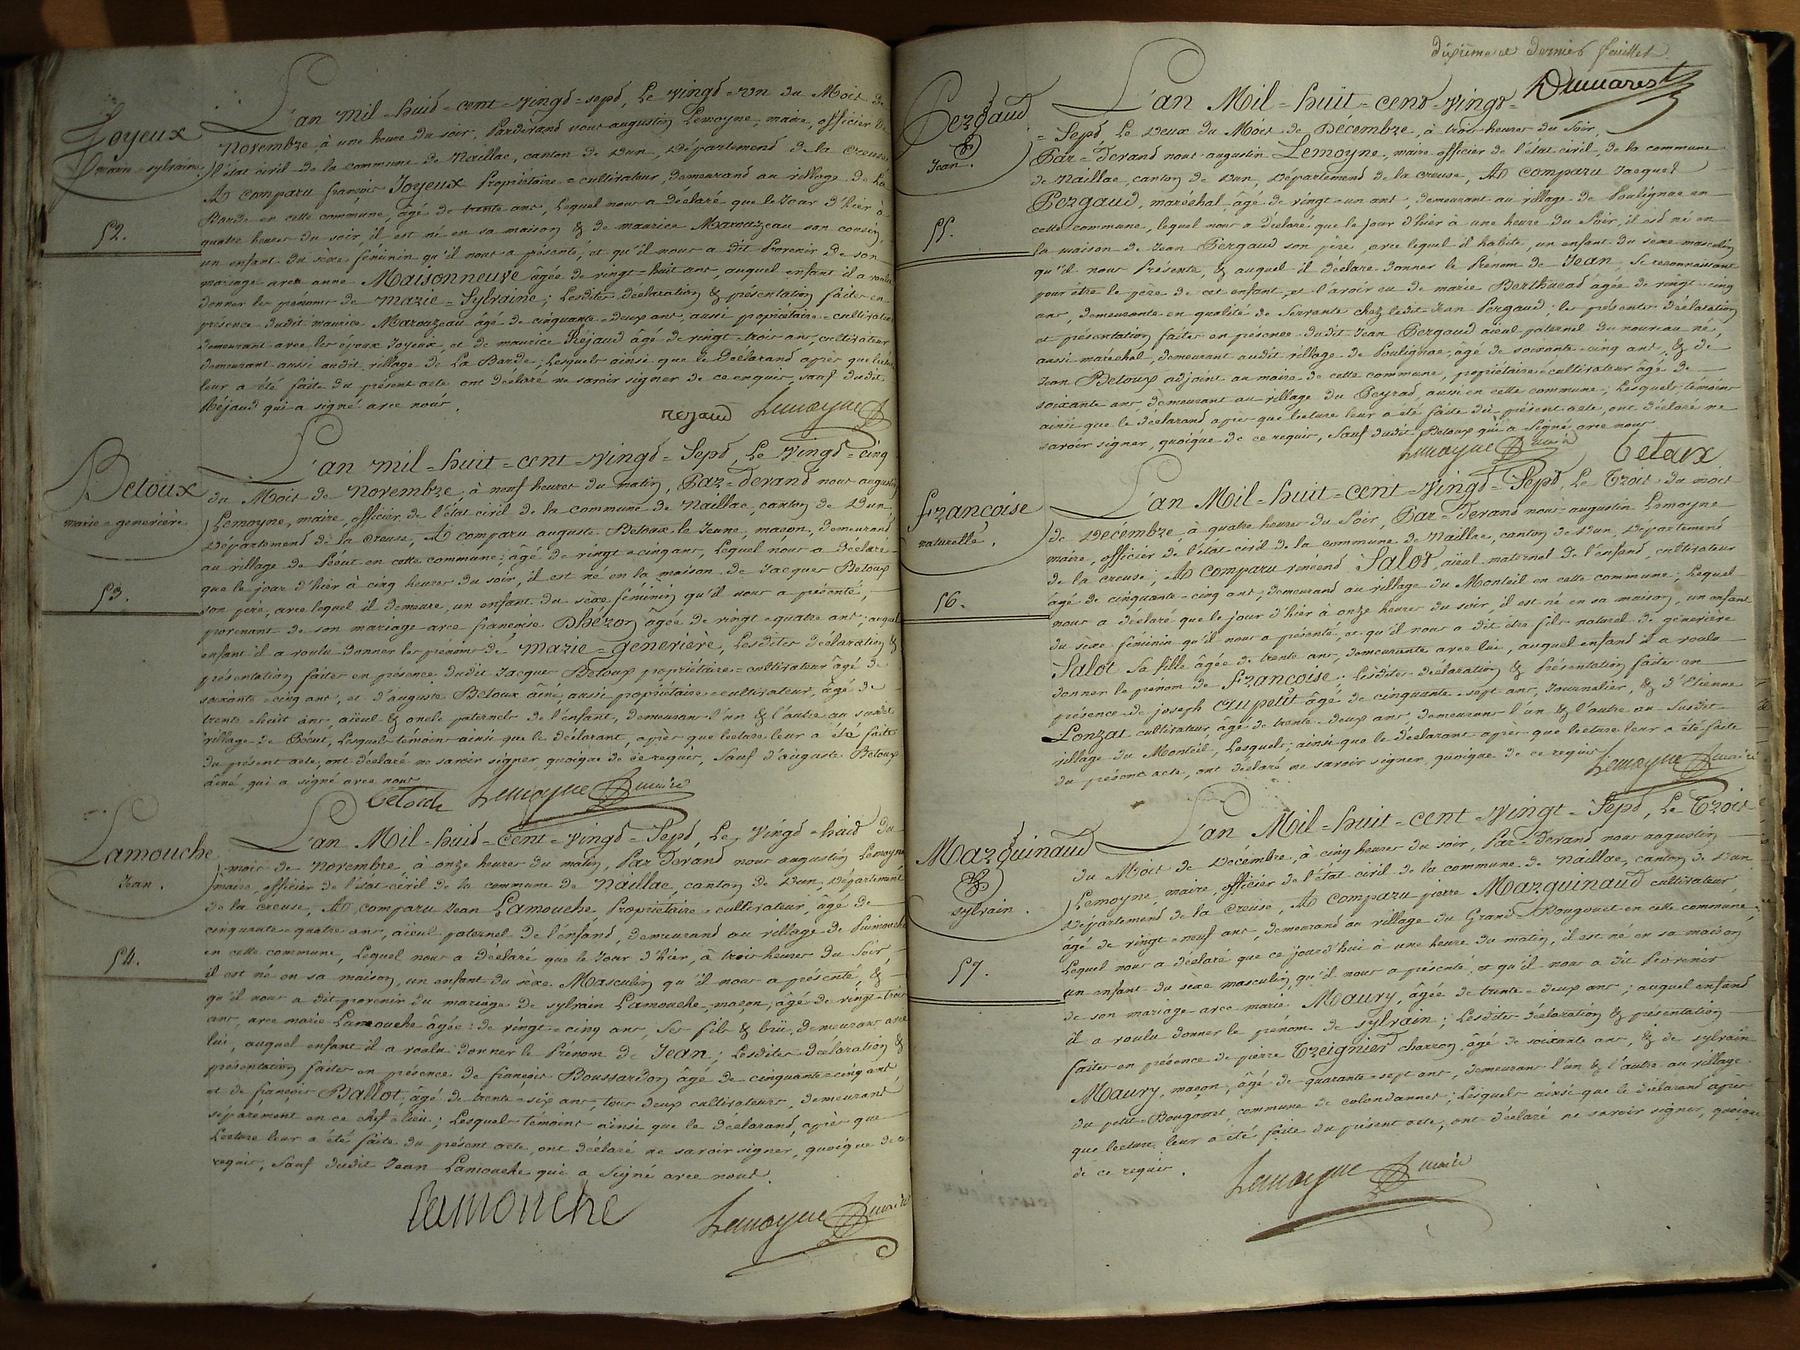 Joyeux
marie = sylvaine.
52.
L'an mil = huit = cent = vingt = sept, Le vingt = un du Mois de
Novembre, à une heure du soir, Pardevant nous augustin Lemoyne, maire, officier de
l'état civil de la commune de Naillac, canton de Dun, Département de la Creuse
A comparu françois Joyeux Propriétaire = cultivateur, demeurant au village de La
Barde en cette commune, âgé de trente ans, Lequel nous a déclaré que le Jour d'hier à
quatre heures du soir, il est né en sa maison & de maurice Marouzeau son cousin,
un enfant du sèxe féminin qu'il nous a présenté, et qu'il nous a dit Provenir de son
mariage avec anne Maisonneuve âgée de vingt = huit ans, auquel enfant il a voulu
donner les prénoms de Marie = Sylvaine; Lesdites déclaration & présentation faites en
présence dudit maurice Marouzeau âgé de cinquante = deux ans, aussi propriétaire = cultivateur
demeurant avec les époux Joyeux, et de maurice Réjaud âgé de vingt = trois ans, cultivateur
demeurant aussi audit village de La Barde; Lesquels ainsi que le Déclarant après que lecture
leur a été faite du présent acte ont déclaré ne savoir signer de ce enquis, sauf dudit
Réjaud qui a signé avec nous.
rejaud Lemoyne
Betoux
marie = genevieve
53.
L'an mil = huit = cent = vingt = Sept, Le Vingt = cinq
du Mois de Novembre, à neuf heures du matin, Par = devant nous augustin
Lemoyne, maire, officier de l'état civil de la commune de Naillac, canton de Dun,
Département de la Creuse, A comparu auguste Betoux le Jeune, maçon, demeurant
au village de Pécut en cette commune, âgé de vingt = cinq ans, Lequel nous a déclaré
que le jour d'hier à cinq heures du soir, il est né en la maison de Jacques Betoux
son père, avec lequel il demeure, un enfant du sèxe féminin qu'il nous a présenté,
provenant de son mariage avec françoise Dhéron âgée de vingt = quatre ans; auquel
enfant il a voulu donner les prénoms de Marie = genevière, Lesdites déclaration &
présentation faites en présence dudit Jacques Betoux propriétaire = cultivateur âgé de
soixante = cinq ans, et d'auguste Betoux aîné, aussi propriétaire = cultivateur, âgé de
trente = huit ans, aïeul & oncle paternels de l'enfant, demeurans l'un & l'autre au susdit
village de Pécut, Lesquels témoins ainsi que le déclarant, après que lecture leur a été faite
du présent acte, ont déclaré ne savoir signer, quoique de ce requis, Sauf d'auguste Betoux
aîné, qui a signé avec nous
Betoux Lemoyne maire
Lamouche
Jean.
54.
L'an Mil = huit = cent = vingt = Sept, Le, Vingt = huit du
mois de Novembre, à onze heures du matin, Par devant nous augustin Lemoyne
maire, officier de l'état civil de la commune de Naillac, canton de Dun, Département
de la creuse, A comparu Jean Lamouche, Propriétaire = cultivateur, âgé de
cinquante = quatre ans, aïeul paternel de l'enfant, demeurant au village de
en cette commune, Lequel nous a déclaré que le Jour d'hier, à trois heures du Soir,
il est né en sa maison, un enfant du sèxe Masculin qu'il nous a présenté, &
qu'il nous a dit provenir du mariage de sylvain Lamouche, maçon, âgé de vingt = trois
ans, avec marie Lamouche âgée de vingt = cinq ans, Ses fils & brü, demeurans avec
lui, auquel enfant il a voulu donner le Prénom de Jean; Lesdites Déclaration &
présentation faites en présence de françois Boussardon âgé de cinquante = cinq ans
et de françois Ballot, âgé de trente = six ans, tous deux cultivateurs, demeurant
séparément en ce chef = lieu; Lesquels témoins ainsi que le déclarant, après que
Lecture leur a été faite du présent acte, ont déclaré ne savoir signer, quoique de ce
requis, Sauf dudit Jean Lamouche qui a Signé avec nous.
Lamouche Lemoyne maire
dixième et dernier feuillet
Bergaud
Jean.
55.
L'an Mil = huit = cent = vingt =
= Sept Le deux du Mois de Décembre, à trois heures du Soir,
Par = devant nous augustin Lemoyne, maire officier de l'état civil, de la commune
de Naillac, canton de Dun, Département de la creuse, A comparu Jacques
Bergaud, maréchal, âgé de vingt = un ans, demeurant au village de Soulignac en
cette commune, lequel nous a déclaré que le jour d'hier à une heure du Soir, il est né en
la maison de Jean Bergaud son père, avec lequel il habite, un enfant du sèxe masculin
qu'il nous Présente, & auquel il déclare donner le Prénom de Jean, Se reconnaissant
pour être le père de cet enfant, et l'avoir eu de marie Berthueat âgée de vingt = cinq
ans, demeurante en qualité de Servante chez ledit Jean Bergaud; les présentes Déclaration
et présentation faites en présence dudit Jean Bergaud aïeul paternel du nouveau né,
aussi maréchal, demeurant audit village de Soulignac, âgé de soixante = cinq ans, & de
Jean Betoux adjoint au maire de cette commune, propriétaire = cultivateur âgé de
soixante ans, demeurant au village du Peyrat, aussi en cette commune; Lesquels témoins
ainsi que le déclarant après que lecture leur a été faite du présent acte, ont déclaré ne
savoir signer, quoique de ce requis, Sauf dudit Betoux qui a signé avec nous
Lemoyne maire Betoux
françoise
naturelle.
56.
L'an Mil = huit = cent = Vingt = Sept, Le Trois du mois
de Décembre, à quatre heures du Soir, Par = devant nous augustin Lemoyne
maire, officier de l'état civil de la commune de Naillac, canton de Dun, Département
de la creuse; A comparu Salot, aïeul maternel de l'enfant, cultivateur
âgé de cinquante = cinq ans, demeurant au village du Monteil en cette commune; Lequel
nous a déclaré que le jour d'hier à onze heures du soir, il est né en sa maison, un enfant
du sèxe féminin qu'il nous a présenté, et qu'il nous a dit être fils naturel de genevière
Salot sa fille âgée de trente ans, demeurante avec lui, auquel enfant il a voulu
donner le prénom de Françoise; Lesdites déclaration & Présentation faites en
présence de joseph Aupetit âgé de cinquante = sept ans, Journalier, & d'Etienne
Lonzat cultivateur, âgé de trente = deux ans, demeurans l'un & l'autre au Susdit
village du Monteil; Lesquels, ainsi que le déclarant après que lecture leur a été faite
du présent acte, ont déclaré ne savoir signer, quoique de ce requis
Lemoyne maire
Marguinaud
sylvain.
57.
L'an Mil = huit = cent = vingt = Sept, Le Trois
du Mois de Décembre, à cinq heures du soir, Par = devant nous augustin
Lemoyne, maire, officier de l'état civil de la commune de Naillac, canton de Dun
Département de la Creuse, A comparu pierre Marguinaud cultivateur,
âgé de vingt = neuf ans, demeurant au village du Grand Bougouet en cette commune,
Lequel nous a déclaré que ce jour d'hui à une heure du matin, il est né en sa maison
un enfant du sèxe masculin, qu'il nous a présenté, et qu'il nous a dit Provenir
de son mariage avec marie Meaury, âgée de trente = deux ans; auquel enfant
il a voulu donner le prénom de sylvain; Lesdites déclaration & présentation
faites en présence de pierre Treignier charron, âgé de soixante ans, & de sylvain
Maury, maçon, âgé de quarante = sept ans, demeurans l'un & l'autre au village
du petit Bougouet, commune de colondannes; Lesquels ainsi que le déclarant après
que lecture leur a été faite du présent acte, ont déclaré ne savoir signer, quoique
de ce requis.
Lemoyne maire